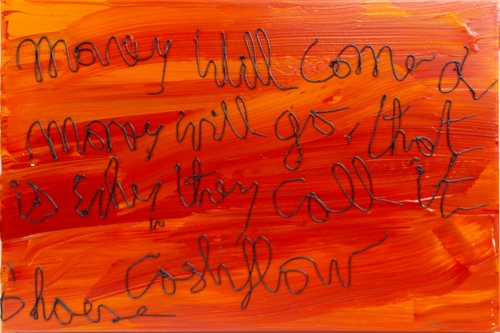 money will come &
money will go, that
is why they call it
Cashflow